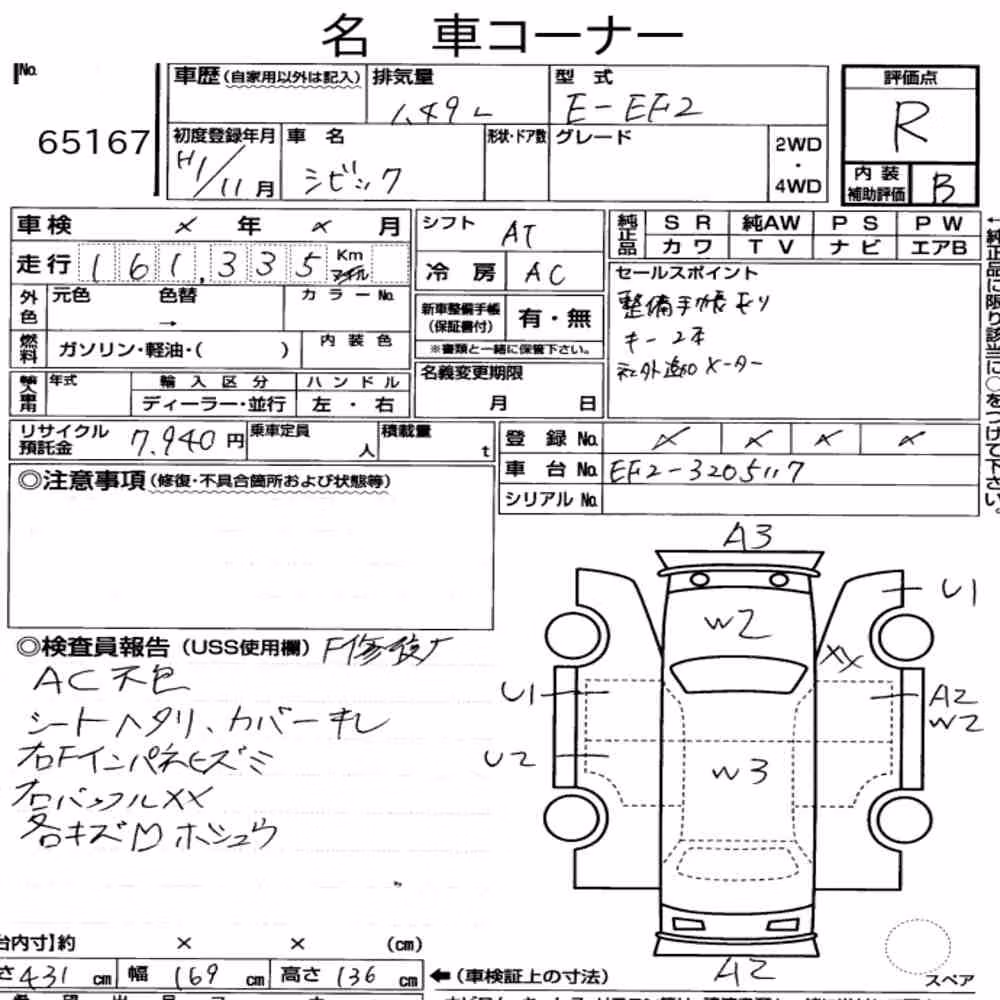 名 車コーナー
No.
65167
車歴(自家用以外は記入)
排気量
1.49 L
型式
E-EF2
評価点
R
初度登録年月
H1/11月
車名
シビック
形状・ドア数
グレード
2WD
・
4WD
内装
補助評価
B
車検 × 年 × 月
走行 161,335 Km
マイル
シフト
AT
冷房 AC
純正品
SR 純AW PS PW
カワ TV ナビ エアB
セールスポイント
整備手帳有り
キー2本
社外追加メーター
←純正品に限り該当に○をつけて下さい。
外色
元色 色替
→
カラーNo.
燃料
ガソリン・軽油・( )
内装色
新車整備手帳
(保証書付)
有・無
※書類と一緒に保管下さい。
輸入車用
年式
輸入区分
ディーラー・並行
ハンドル
左・右
名義変更期限
月 日
リサイクル
預託金
7,940円
乗車定員
人
積載量
t
登録No. × × × ×
車台No. EF2-3205117
シリアルNo.
◎注意事項(修復・不具合箇所および状態等)
◎検査員報告(USS使用欄)
AC不色
シートヘタリ、カバーキレ
右Fインパネヒズミ
右バックルXX
各キズ凹ホシュウ
A3
U1
W2
XX
U1
A2
W2
U2
W3
A2
スペア
台内寸】約 × × (cm)
さ431cm 幅169cm 高さ136cm
←(車検証上の寸法)